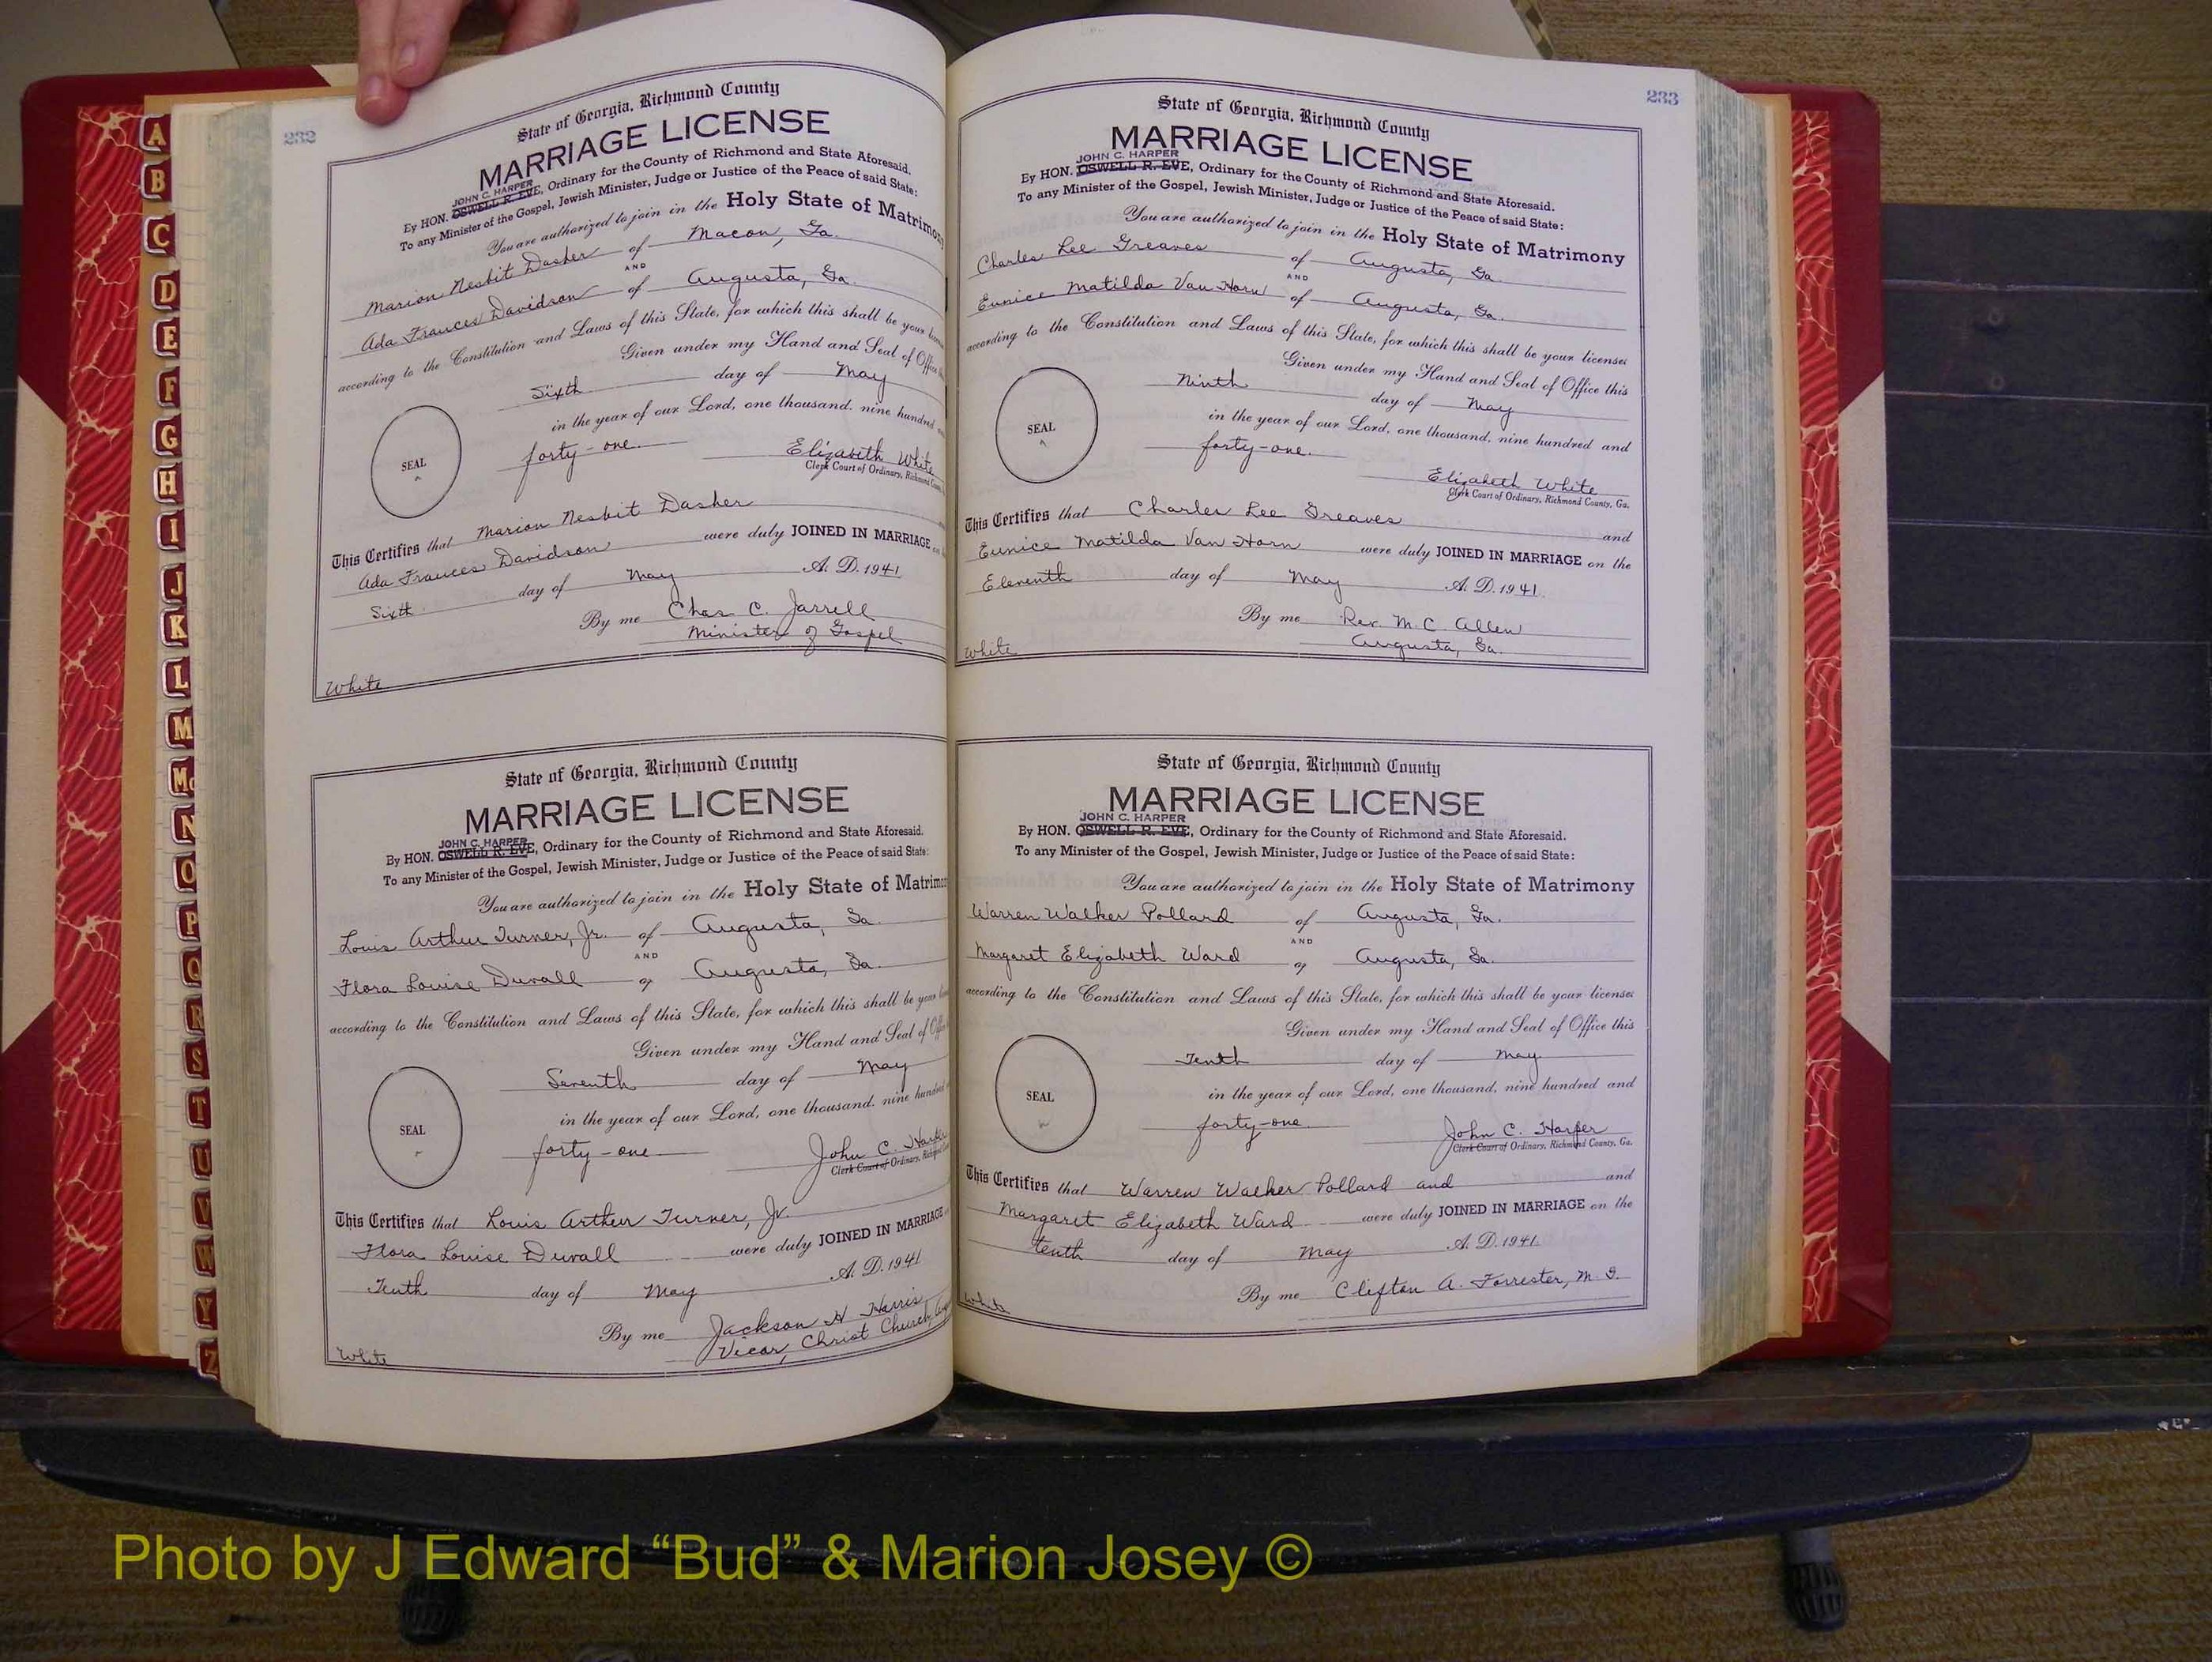 232
State of Georgia, Richmond County
MARRIAGE LICENSE
JOHN C. HARPER
By HON. OSWELL R. EVE, Ordinary for the County of Richmond and State Aforesaid.
To any Minister of the Gospel, Jewish Minister, Judge or Justice of the Peace of said State:
You are authorized to join in the Holy State of Matrimony
Marion Nesbit Dasher of Macon, Ga.
AND
Ada Frances Davidson of Augusta, Ga.
according to the Constitution and Laws of this State, for which this shall be your
Given under my Hand and Seal of Office
Sixth day of May
in the year of our Lord, one thousand, nine hundred
forty-one.
SEAL
Elizabeth White
Clerk Court of Ordinary, Richmond
This Certifies that Marion Nesbit Dasher
Ada Frances Davidson were duly JOINED IN MARRIAGE
Sixth day of May A. D. 1941
By me Chas C. Jarrell
Minister of Gospel
White
State of Georgia, Richmond County
MARRIAGE LICENSE
JOHN C. HARPER
By HON. OSWELL R. EVE, Ordinary for the County of Richmond and State Aforesaid.
To any Minister of the Gospel, Jewish Minister, Judge or Justice of the Peace of said State:
You are authorized to join in the Holy State of Matrimony
Louis Arthur Turner, Jr. of Augusta, Ga.
AND
Flora Louise Duvall of Augusta, Ga.
according to the Constitution and Laws of this State, for which this shall be your
Given under my Hand and Seal of
Seventh day of May
in the year of our Lord, one thousand, nine hundred
forty-one
SEAL
John C. Harper
Clerk Court of Ordinary,
This Certifies that Louis Arthur Turner, Jr.
Flora Louise Duvall were duly JOINED IN MARRIAGE
Tenth day of May A. D. 1941
By me Jackson H Harris
Vicar, Christ Church,
White
233
State of Georgia, Richmond County
MARRIAGE LICENSE
JOHN C. HARPER
By HON. OSWELL R. EVE, Ordinary for the County of Richmond and State Aforesaid.
To any Minister of the Gospel, Jewish Minister, Judge or Justice of the Peace of said State:
You are authorized to join in the Holy State of Matrimony
Charles Lee Greaves of Augusta, Ga.
AND
Eunice Matilda Van Horn of Augusta, Ga.
according to the Constitution and Laws of this State, for which this shall be your license:
Given under my Hand and Seal of Office this
Ninth day of May
in the year of our Lord, one thousand, nine hundred and
forty-one.
SEAL
Elizabeth White
Clerk Court of Ordinary, Richmond County, Ga.
This Certifies that Charles Lee Greaves and
Eunice Matilda Van Horn were duly JOINED IN MARRIAGE on the
Eleventh day of May A. D. 1941.
By me Rev. M. C. Allen
Augusta, Ga.
White
State of Georgia, Richmond County
MARRIAGE LICENSE
JOHN C. HARPER
By HON. OSWELL R. EVE, Ordinary for the County of Richmond and State Aforesaid.
To any Minister of the Gospel, Jewish Minister, Judge or Justice of the Peace of said State:
You are authorized to join in the Holy State of Matrimony
Warren Walker Pollard of Augusta, Ga.
AND
Margaret Elizabeth Ward of Augusta, Ga.
according to the Constitution and Laws of this State, for which this shall be your license:
Given under my Hand and Seal of Office this
Tenth day of May
in the year of our Lord, one thousand, nine hundred and
forty-one.
SEAL
John C. Harper
Clerk Court of Ordinary, Richmond County, Ga.
This Certifies that Warren Walker Pollard and and
Margaret Elizabeth Ward were duly JOINED IN MARRIAGE on the
tenth day of May A. D. 1941.
By me Clifton A. Forrester, M. G.
White
A
B
C
D
E
F
G
H
I
J
K
L
M
Mc
N
O
P
Q
R
S
T
U
V
W
Y
Z
Photo by J Edward “Bud” & Marion Josey ©